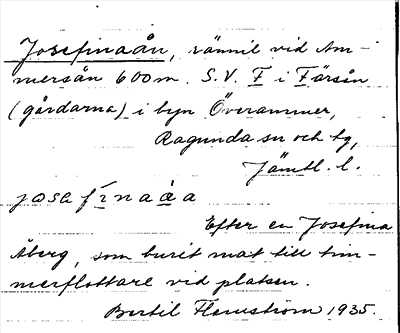 Josefinaån, rännil vid Am-
mersån 600 m. S.V. F i Färsån
(gårdarna) i byn Överammer,
Ragunda sn och tg,
Jämtl. l.
josefinaåa
Efter en Josefina
Åberg, som burit mat till tim-
merflottare vid platsen.
Bertil Flemström 1935.